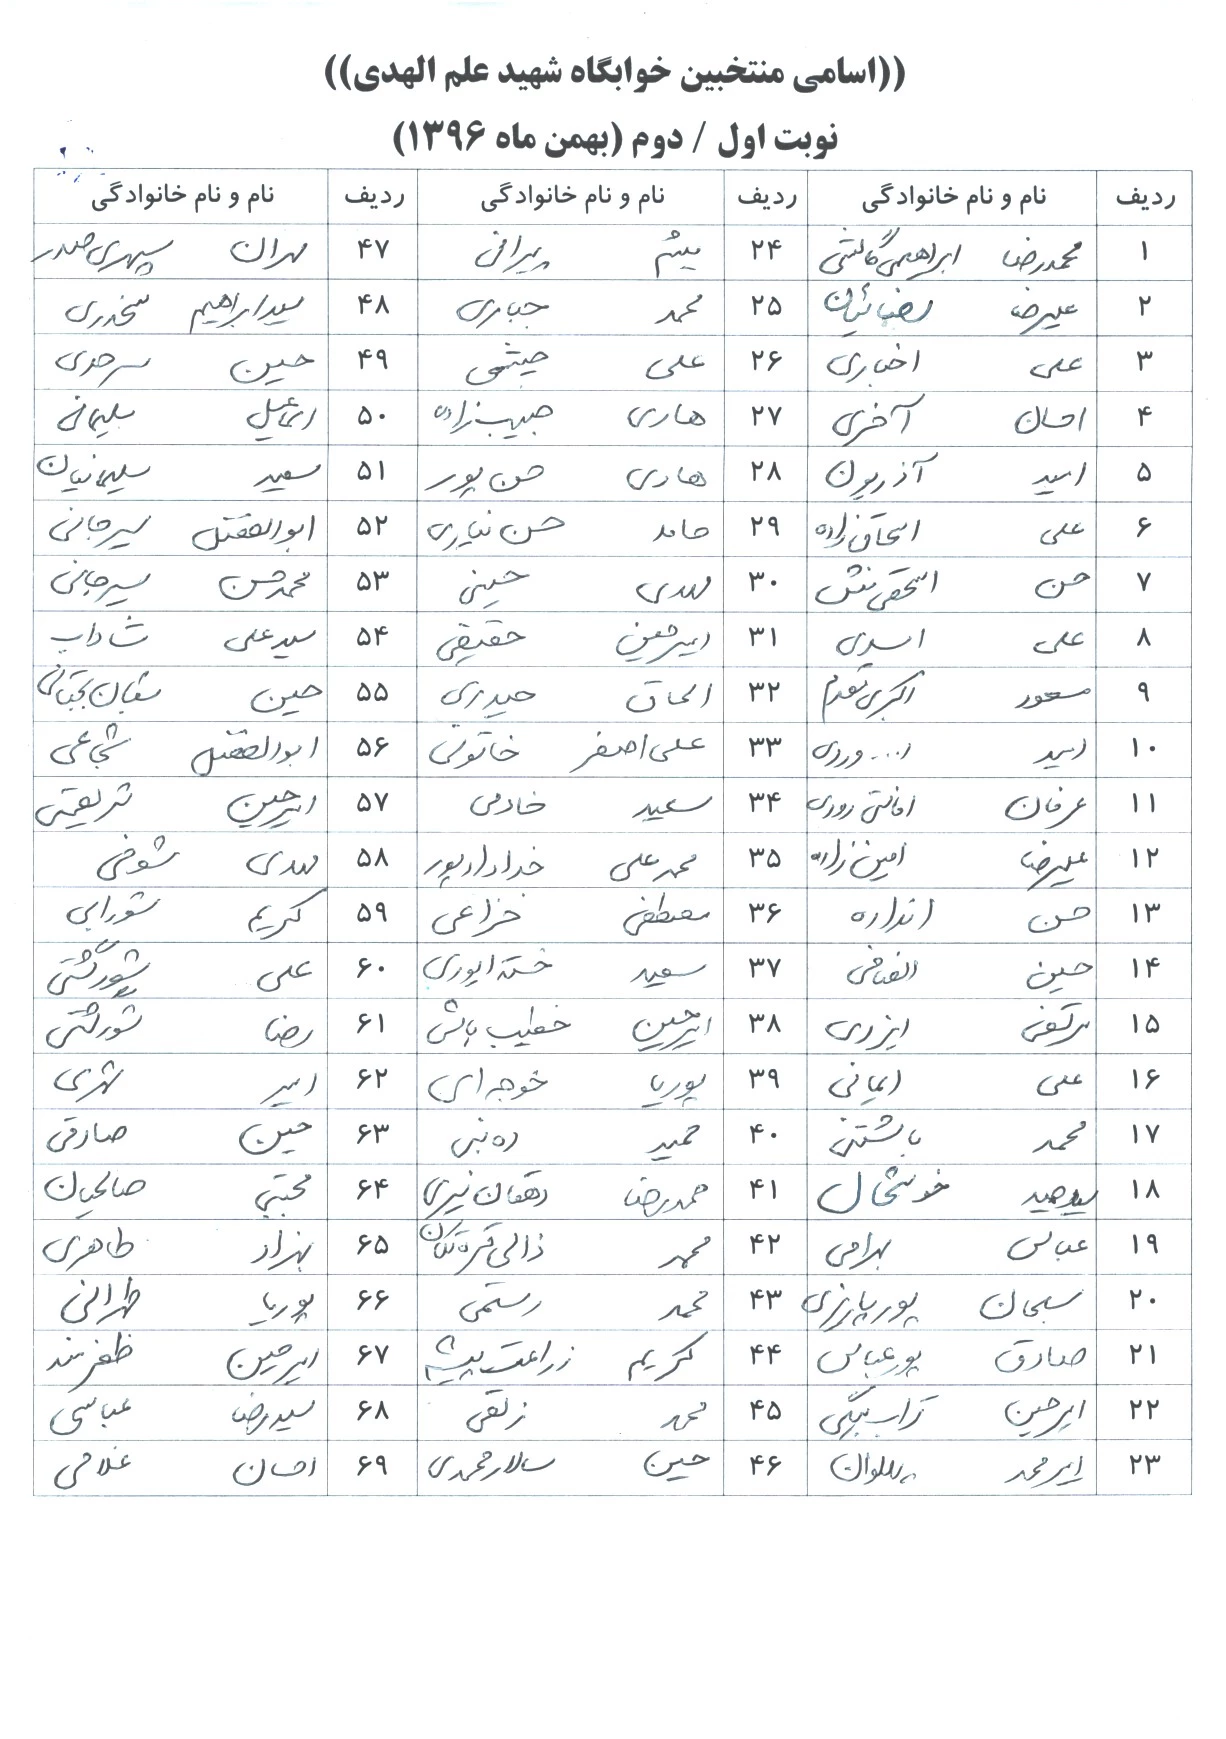 ((اسامی منتخبین خوابگاه شهید علم الهدی))
نوبت اول / دوم (بهمن ماه ۱۳۹۶)
ردیف نام و نام خانوادگی ردیف نام و نام خانوادگی ردیف نام و نام خانوادگی
۱ محمدرضا ابراهیمی ۲۴ میثم پیرانی ۴۷ مهران سپهری صدر
۲ علیرضا ۲۵ محمد جباری ۴۸ سید ابراهیم
۳ علی اخباری ۲۶ علی ۴۹ حسین سرحدی
۴ احسان آخری ۲۷ هادی حبیب زاده ۵۰ اسماعیل سلیمانی
۵ امید آذریون ۲۸ هادی حسن پور ۵۱ سعید سلیمانیان
۶ علی اسحاق زاده ۲۹ حامد حسن نیازی ۵۲ ابوالفضل سیرجانی
۷ حسن اسحقی منش ۳۰ مهدی حسینی ۵۳ محمدحسن سیرجانی
۸ علی اسدی ۳۱ امیرحسین حقیقی ۵۴ سید علی شاداب
۹ مسعود اکبری مقدم ۳۲ اسحاق حیدری ۵۵ حسین
۱۰ امید ۳۳ علی اصغر خاتونی ۵۶ ابوالفضل شجاعی
۱۱ عرفان امانتی رودی ۳۴ سعید خادمی ۵۷ امیرحسین شریعتی
۱۲ علیرضا امین زاده ۳۵ محمدعلی خدادادپور ۵۸ مهدی شوقی
۱۳ حسن اندازه ۳۶ مصطفی خزاعی ۵۹ کریم شورابی
۱۴ حسین انصافی ۳۷ سعید ۶۰ علی شورگشتی
۱۵ مرتضی ایزدی ۳۸ امیرحسین خطیب ۶۱ رضا شورگشتی
۱۶ علی ایمانی ۳۹ پوریا خوجه ای ۶۲ امیر شهری
۱۷ محمد باشتنی ۴۰ حمید ده نبی ۶۳ حسین صادقی
۱۸ سید حمید خوشحال ۴۱ محمدرضا دهقان نیری ۶۴ مجتبی صالحیان
۱۹ عباس بهرامی ۴۲ محمد ۶۵ بهزاد طاهری
۲۰ سبحان پور پاریزی ۴۳ محمد رستمی ۶۶ پوریا طهرانی
۲۱ صادق پورعباس ۴۴ کریم زراعت پیشه ۶۷ امیرحسین ظفرمند
۲۲ امیرحسین تراب بیگی ۴۵ محمد زنقی ۶۸ سیدرضا عباسی
۲۳ امیرمحمد پهلوان ۴۶ حسین سالارمحمدی ۶۹ احسان غلامی